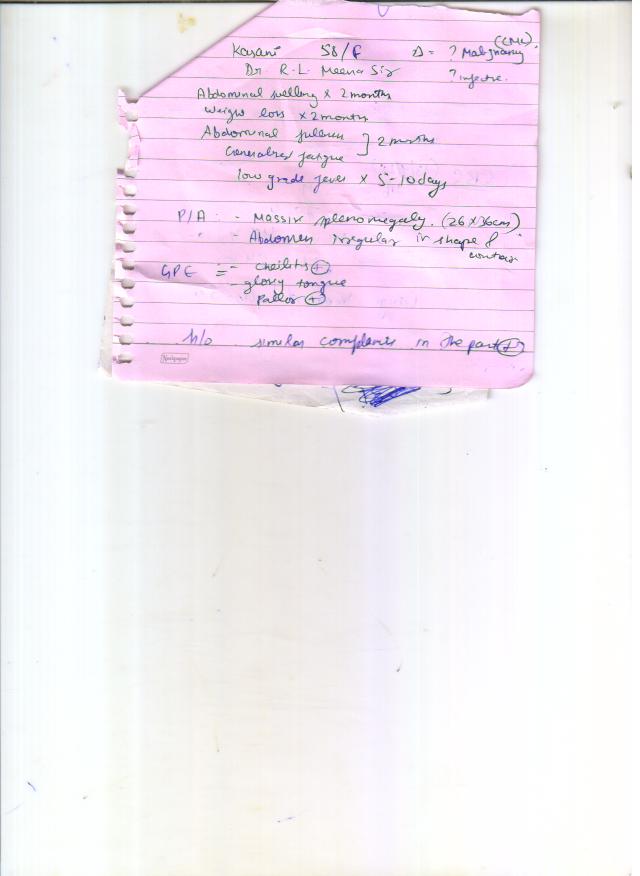 (CML)
Kasani 58/F Δ = ? Malignancy
Dr. R.L. Meena Sir ? infective.
Abdominal swelling x 2 months
Weight loss x 2 months
Abdominal fullness } 2 months
Generalised fatigue
low grade fever x 5-10 days
P/A - Massive splenomegaly. (26 x 36cm)
- Abdomen irregular in shape &
contour
GPE = - cheilitis (+)
- glossy tongue
- Pallor (+)
h/o similar complaints in the past (+)
Neelgagan